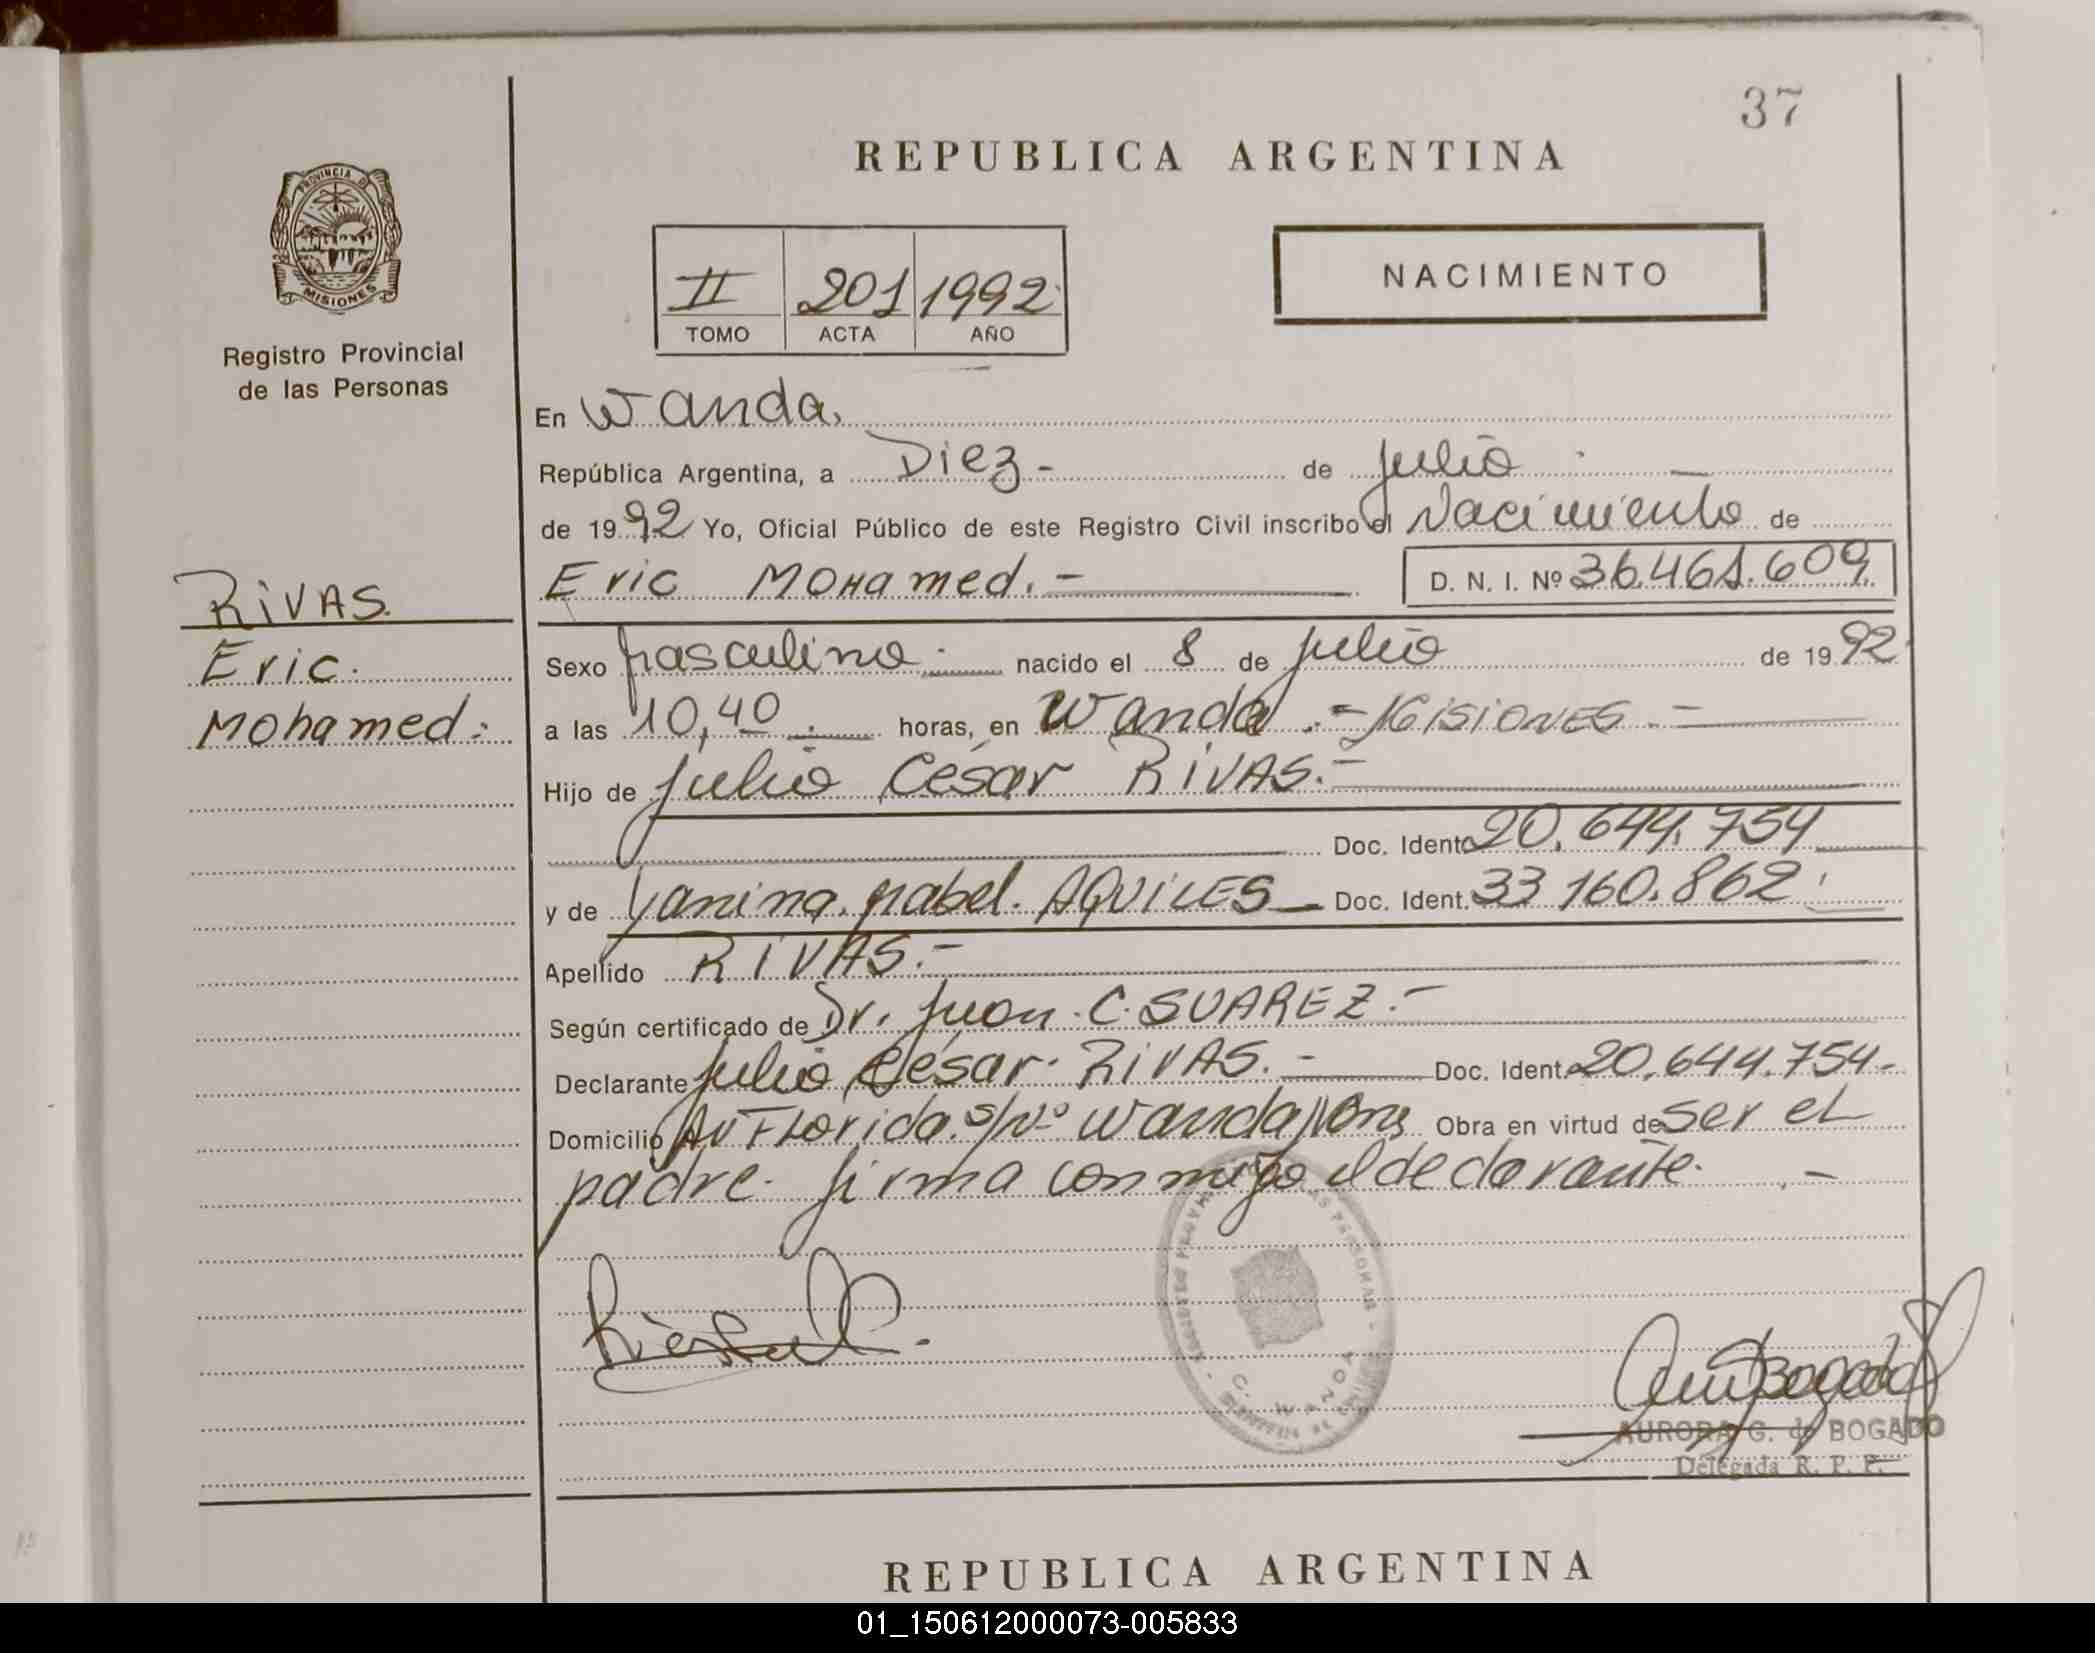 37
REPUBLICA ARGENTINA
PROVINCIA DE
MISIONES
Registro Provincial
de las Personas
II 201 1992
TOMO ACTA AÑO
NACIMIENTO
En Wanda.
República Argentina, a Diez - de julio
de 1992 Yo, Oficial Público de este Registro Civil inscribo el Nacimiento de
Eric Mohamed. - D. N. I. Nº 36.461.609
RIVAS.
Eric.
Mohamed:
Sexo Masculino nacido el 8 de julio de 1992
a las 10,40 horas, en Wanda. - MISIONES. -
Hijo de Julio César RIVAS. -
Doc. Ident. 20.644.754
y de Yanina Mabel. AQUILES Doc. Ident. 33 160.862
Apellido RIVAS. -
Según certificado de Dr. Juan C. SUAREZ. -
Declarante Julio César RIVAS. - Doc. Ident. 20.644.754 -
Domicilio Av Florida. s/nº Wanda, Mnes Obra en virtud de ser el
padre. firma conmigo el declarante. -
WANDA
AURORA G. de BOGADO
Delegada R. P. P.
REPUBLICA ARGENTINA
01_150612000073-005833